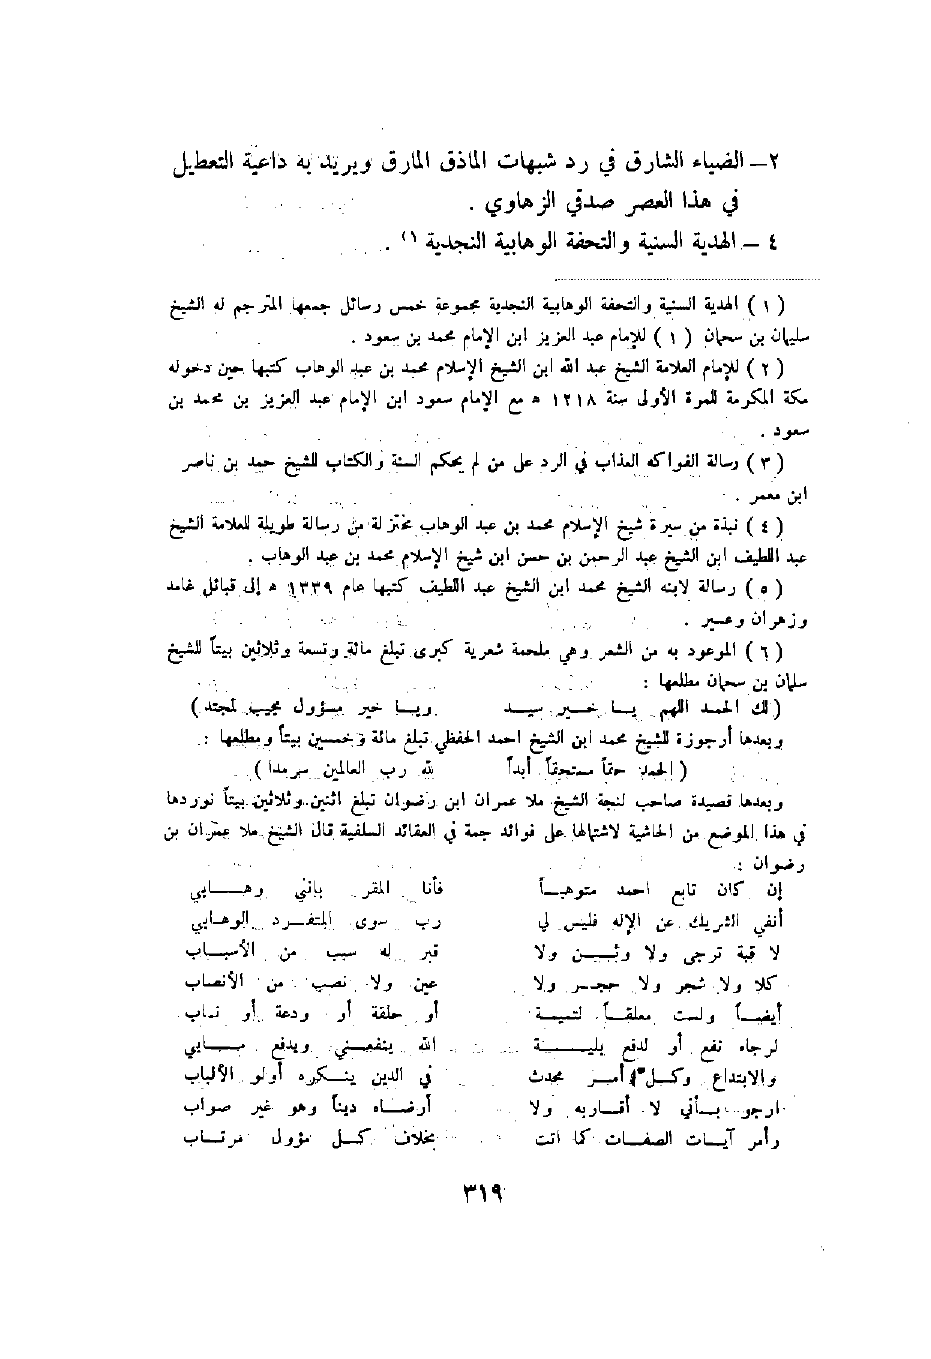 ٢ – الضياء الشارق في رد شبهات الماذق المارق ويريد به داعية التعطيل
في هذا العصر صدقي الزهاوي .
٤ – الهدية السنية والتحفة الوهابية النجدية (١) .
( ١ ) الهدية السنية والتحفة الوهابية النجدية مجموعة خمس رسائل جمعها المترجم له الشيخ
سليمان بن سحمان ( ١ ) للإمام عبد العزيز ابن الإمام محمد بن سعود .
( ٢ ) للإمام العلامة الشيخ عبد الله ابن الشيخ الإسلام محمد بن عبد الوهاب كتبها حين دخوله
مكة المكرمة للمرة الأولى سنة ١٢١٨ ه مع الإمام سعود ابن الإمام عبد العزيز بن محمد بن
سعود .
( ٣ ) رسالة الفواكه العذاب في الرد على من لم يحكم السنة والكتاب للشيخ حمد بن ناصر
ابن معمر .
( ٤ ) نبذة من سيرة شيخ الإسلام محمد بن عبد الوهاب مختزلة من رسالة طويلة للعلامة الشيخ
عبد اللطيف ابن الشيخ عبد الرحمن بن حسن ابن شيخ الإسلام محمد بن عبد الوهاب .
( ٥ ) رسالة لابنه الشيخ محمد ابن الشيخ عبد اللطيف كتبها عام ١٣٣٩ ه إلى قبائل غامد
وزهران وعسير .
( ٦ ) الموعود به من الشعر وهي ملحمة شعرية كبرى تبلغ مائة وتسعة وثلاثين بيتاً للشيخ
سلمان بن سحمان مطلعها :
(لك الحمد اللهم يـا خـير سيـد ويـا خير مسؤول مجيب لمجتد )
وبعدها أرجوزة للشيخ محمد ابن الشيخ احمد الحفظي تبلغ مائة وخمسين بيتاً ومطلعها :
( الحمد حقاً مستحقاً أبداً لله رب العالمين سرمدا )
وبعدها قصيدة صاحب لنجة الشيخ ملا عمران ابن رضوان تبلغ اثنين وثلاثين بيتاً نوردها
في هذا الموضع من الحاشية لاشتمالها على فوائد جمة في العقائد السلفية قال الشيخ ملا عمران بن
رضوان :
إن كان تابع احمد متوهبـاً فأنا المقر بأنني وهــابي
أنفي الشريك عن الإله فليس لي رب سوى المتفرد الوهابي
لا قبة ترجى ولا وثـن ولا قبر له سبب من الأسبـاب
كلا ولا شجر ولا حجـر ولا عين ولا نصب من الأنصاب
أيضـاً ولست معلقـاً لتميمة أو حلقة أو ودعة أو نـاب
لرجاء نفع أو لدفع بليـة الله ينفعـني ويدفع مـابي
والابتداع وكـل أمـر محدث في الدين ينـكره أولو الألباب
ارجو بـأني لا أقـاربه ولا أرضـاه ديناً وهو غير صواب
وأمر آيـات الصفـات كما اتت بخلاف كـل مؤول مرتـاب
٣١٩